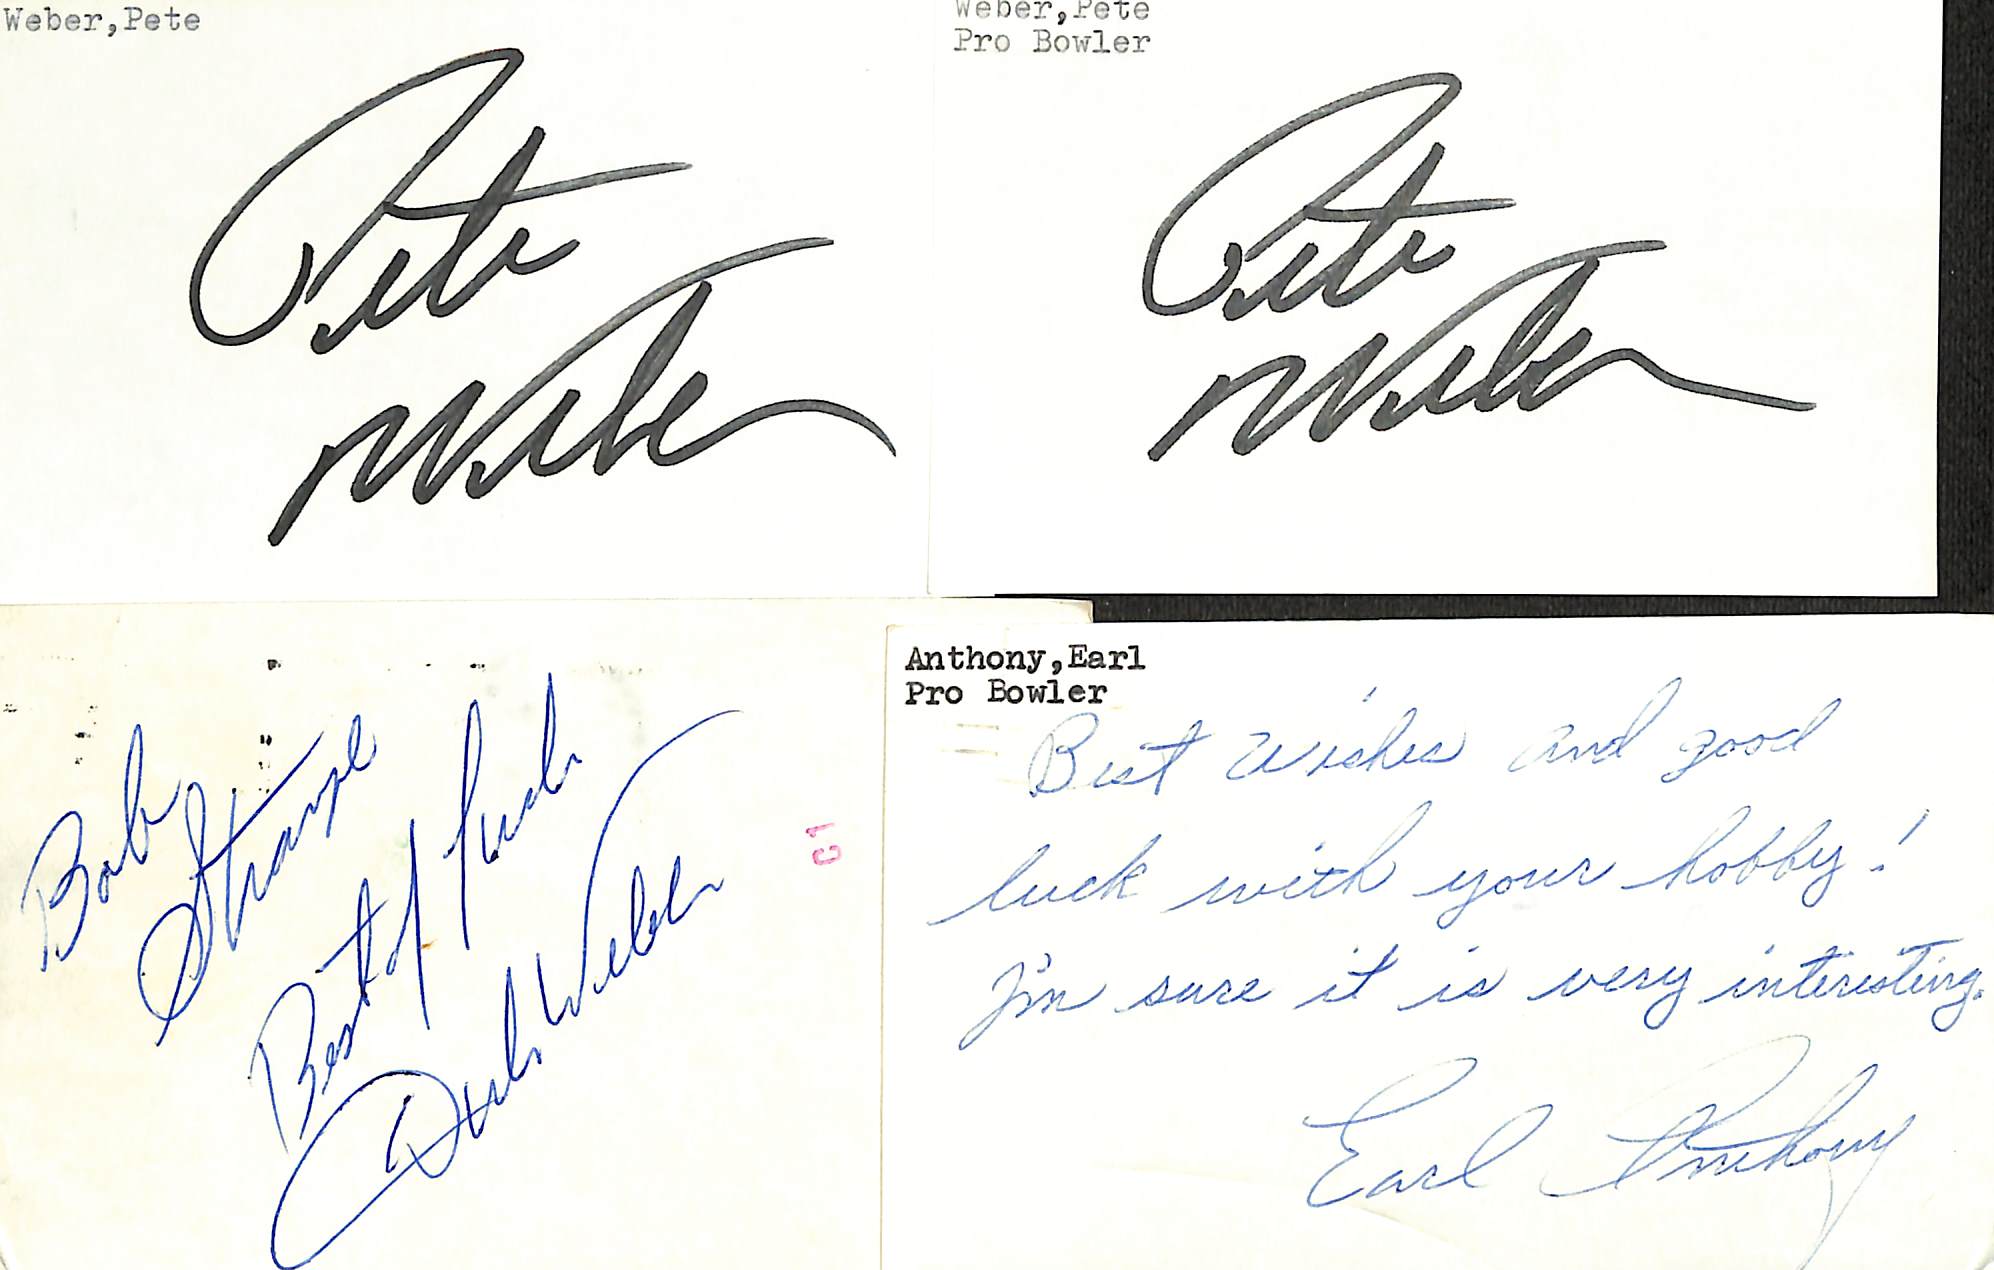 Weber,Pete
Pete
Weber
Weber,Pete
Pro Bowler
Pete
Weber
Bob
Strampe
Best of Luck
Dick Weber
C1
Anthony,Earl
Pro Bowler
Best wishes and good
luck with your hobby!
I'm sure it is very interesting.
Earl Anthony